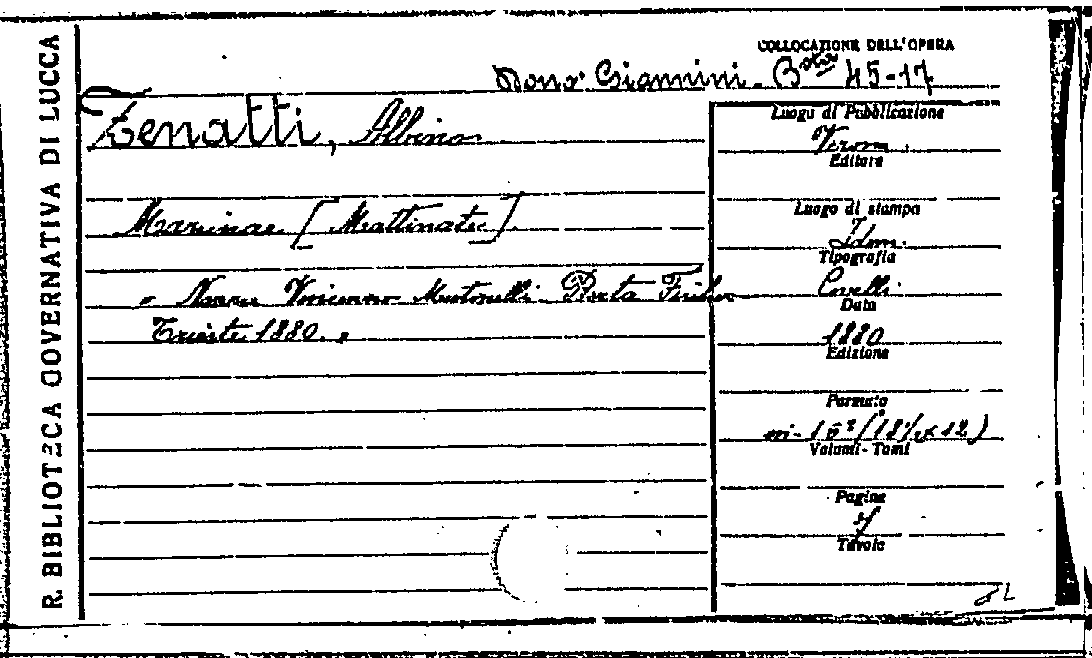 R. BIBLIOTECA GOVERNATIVA DI LUCCA
COLLOCAZIONE DELL'OPERA
Dono Giannini. Bta 45-17
Zenatti, Albino
[Mattinate]
" Nozze Martinelli
Trieste 1880. "
Luogo di Pubblicazione
Verona.
Editore
Luogo di stampa
Idem.
Tipografia
Civelli
Data
1880
Edizione
Formato
Volumi - Tomi
Pagine
Tavole